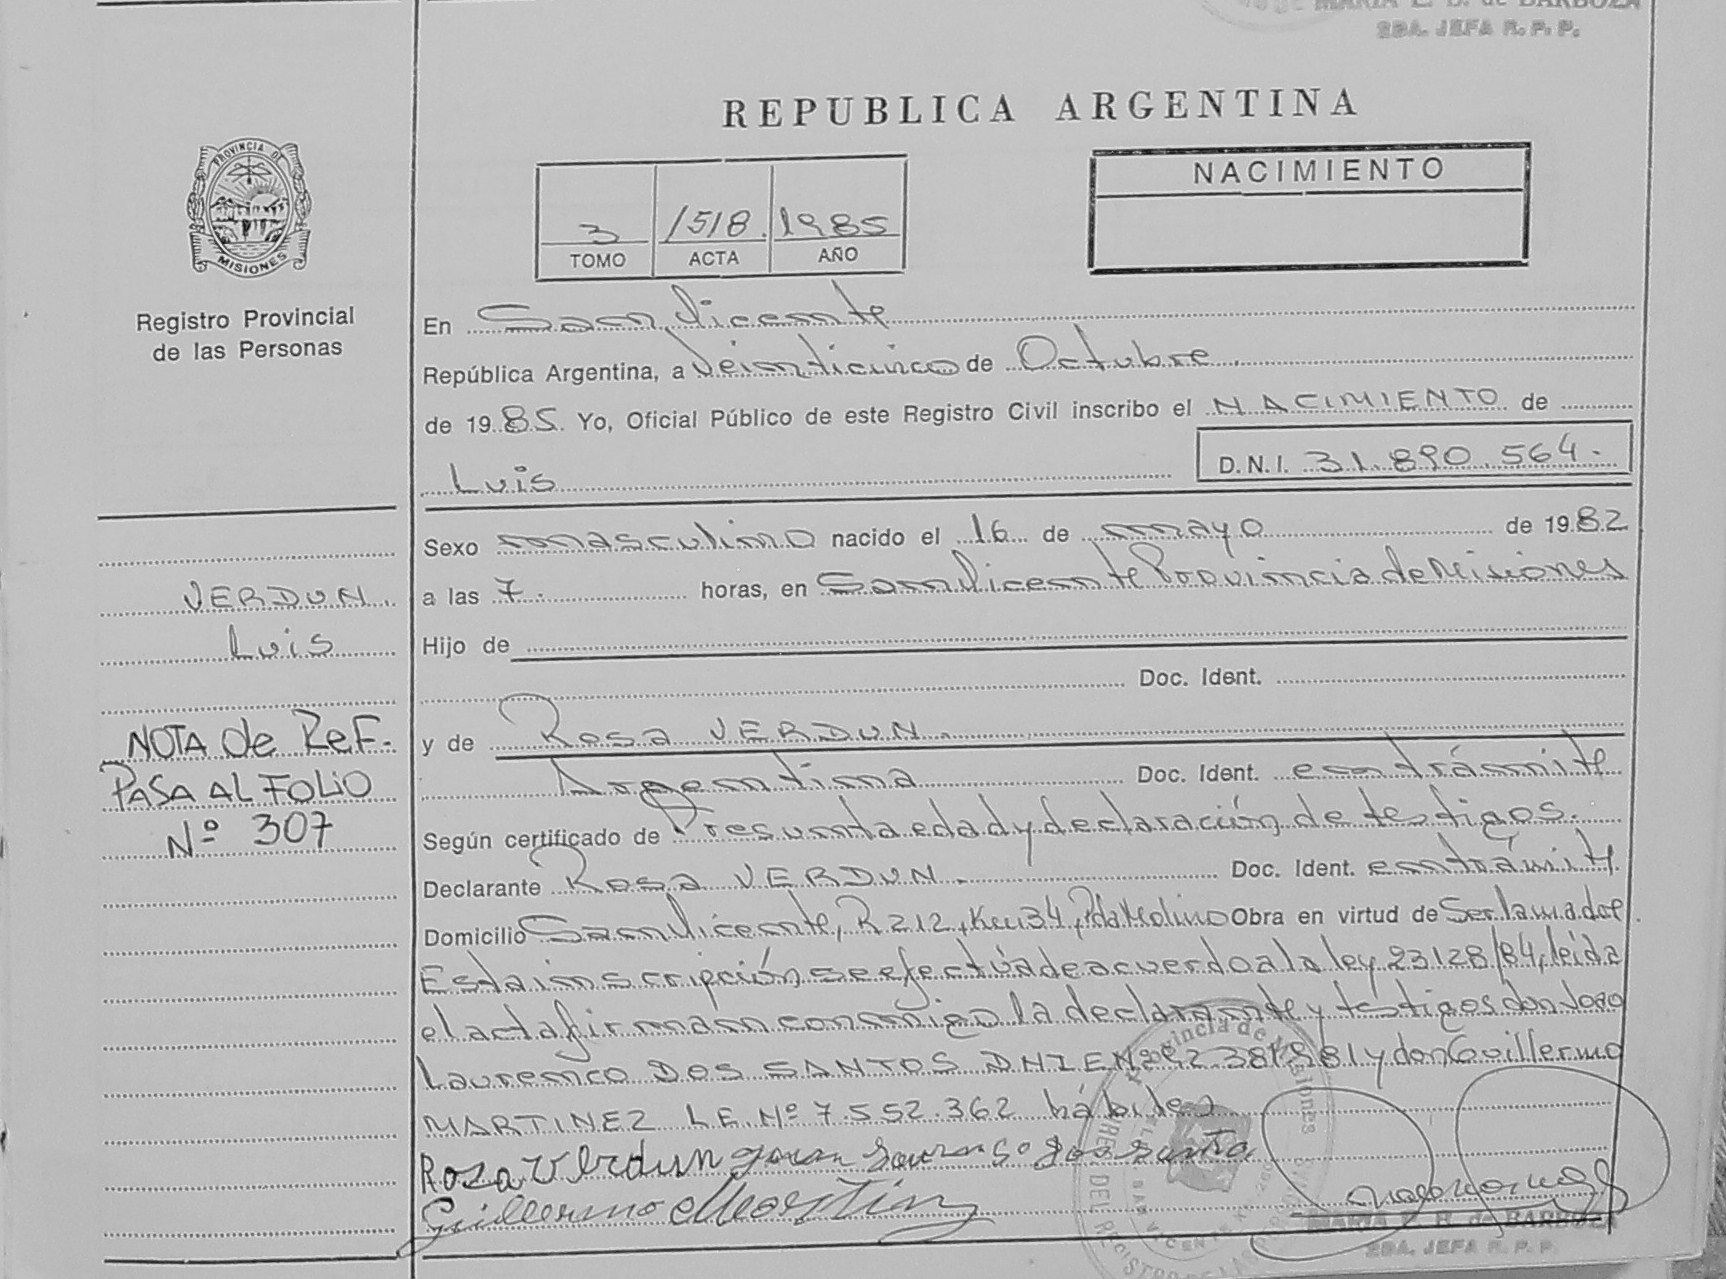 MARIA E. B. de BARBOZA
SBA. JEFA R. P. P.
REPUBLICA ARGENTINA
PROVINCIA DE
MISIONES
Registro Provincial
de las Personas
3 1518. 1985
TOMO ACTA AÑO
NACIMIENTO
En San Vicente
República Argentina, a Veinticinco de Octubre.
de 1985. Yo, Oficial Público de este Registro Civil inscribo el NACIMIENTO de
Luis D.N.I. 31.890.564.
Sexo masculino nacido el 16 de mayo de 1982
a las 7. horas, en San Vicente Provincia de Misiones
Hijo de
Doc. Ident.
y de Rosa VERDUN.
Argentina Doc. Ident. en trámite
Según certificado de Presunta edad y declaración de testigos.
Declarante Rosa VERDUN. Doc. Ident. en trámite
Domicilio San Vicente, R 212, Km 34, Pda Molino Obra en virtud de Ser la madre.
Esta inscripción se efectúa de acuerdo a la ley 23128/84, leída
el acta firman conmigo la declarante y testigos don Joao
Laurenco DOS SANTOS DNIE Nº 92.381881 y don Guillermo
MARTINEZ LE. Nº 7.552.362 hábiles
Rosa Verdun
Guillermo Martin
MARIA E. B. de BARBOZA
SBA. JEFA R. P. P.
VERDUN.
Luis
NOTA de Ref.
PASA AL FOLIO
Nº 307
Provincia de Misiones